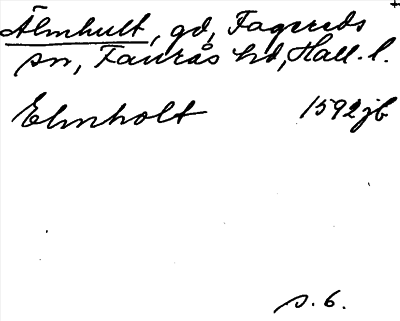 Älmhult, gd, Fagereds +
sn, Faurås hd, Hall. l.
Elmholt 1592 jb
s. 6.